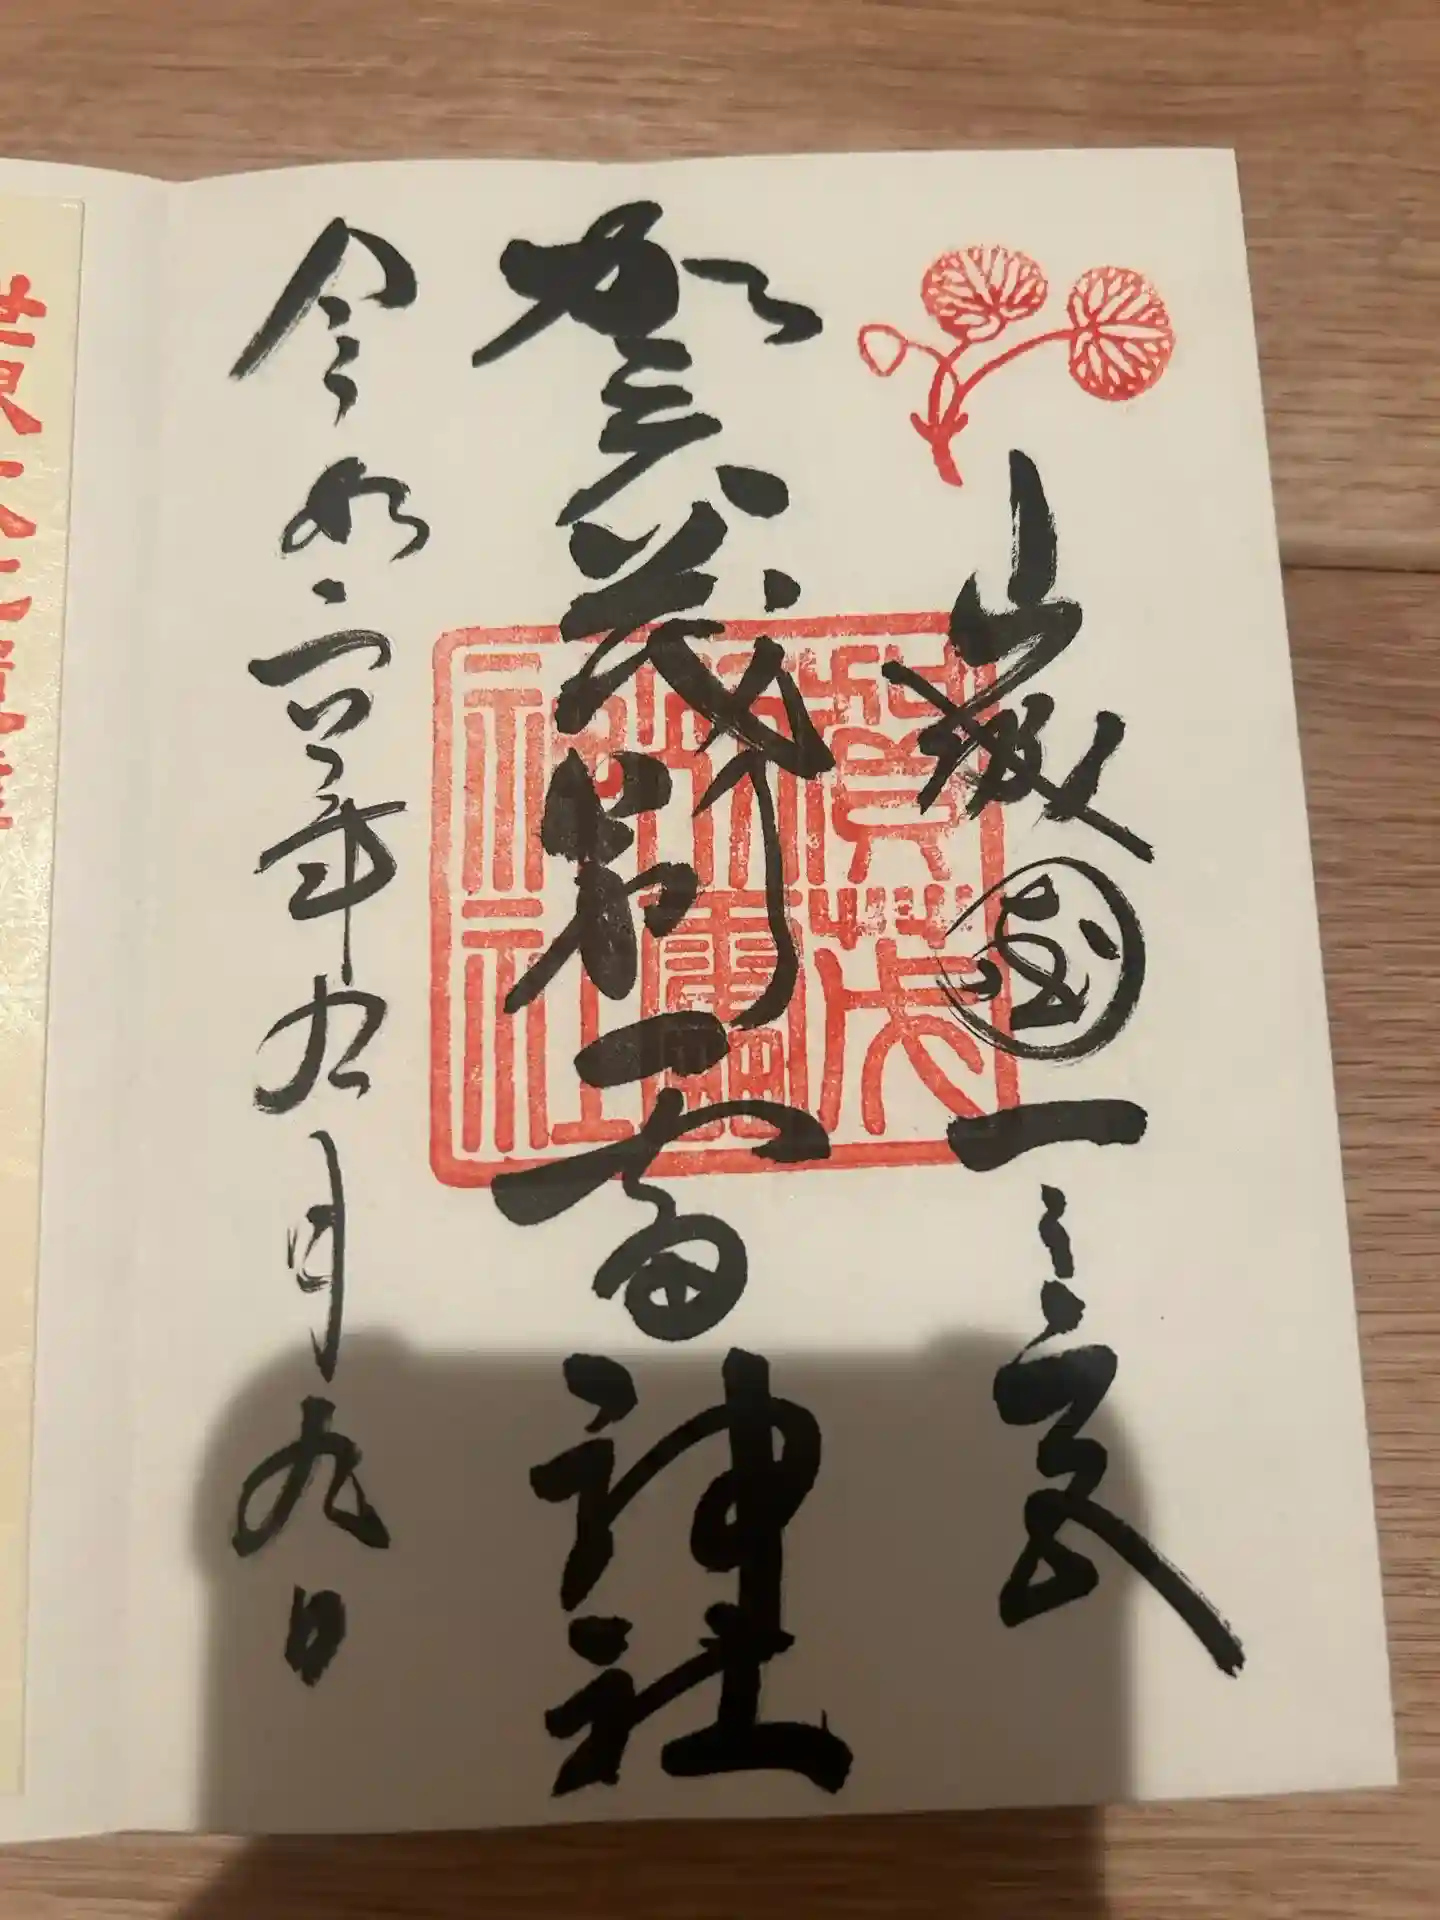 山城國一之宮
賀茂別雷神社
令和六年九月九日
賀茂
別雷
神社